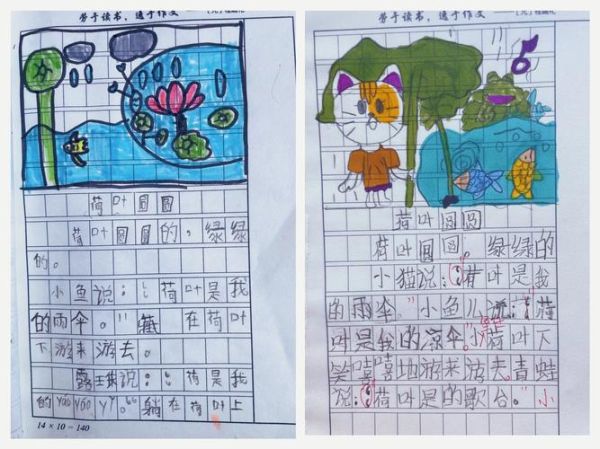 劳于读书，逸于作文
荷叶圆圆
荷叶圆圆的，绿绿
的。
小鱼说：“荷叶是我
的雨伞。”藏在荷叶
下游来游去。
露珠说：“荷是我
的yáo yáo yǐ。”躺在荷叶上
14×10=140
劳于读书，逸于作文
荷叶圆圆
荷叶圆圆。绿绿的
小猫说：“荷叶是我
的雨伞。”小鱼儿说：“荷
叶是我的凉伞。”小荷叶下
笑嘻嘻地游来游去。青蛙
说：“荷叶是的歌台。”小